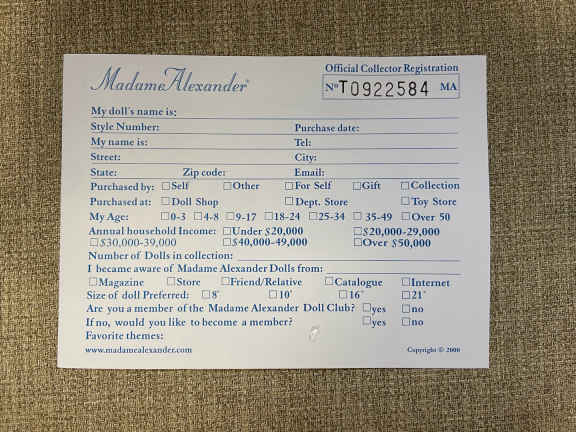 Madame Alexander®
Official Collector Registration
Nº T0922584 MA
My doll's name is:
Style Number: Purchase date:
My name is: Tel:
Street: City:
State: Zip code: Email:
Purchased by: Self Other For Self Gift Collection
Purchased at: Doll Shop Dept. Store Toy Store
My Age: 0-3 4-8 9-17 18-24 25-34 35-49 Over 50
Annual household Income: Under $20,000 $20,000-29,000
$30,000-39,000 $40,000-49,000 Over $50,000
Number of Dolls in collection:
I became aware of Madame Alexander Dolls from:
Magazine Store Friend/Relative Catalogue Internet
Size of doll Preferred: 8" 10" 16" 21"
Are you a member of the Madame Alexander Doll Club? yes no
If no, would you like to become a member? yes no
Favorite themes:
www.madamealexander.com Copyright © 2006